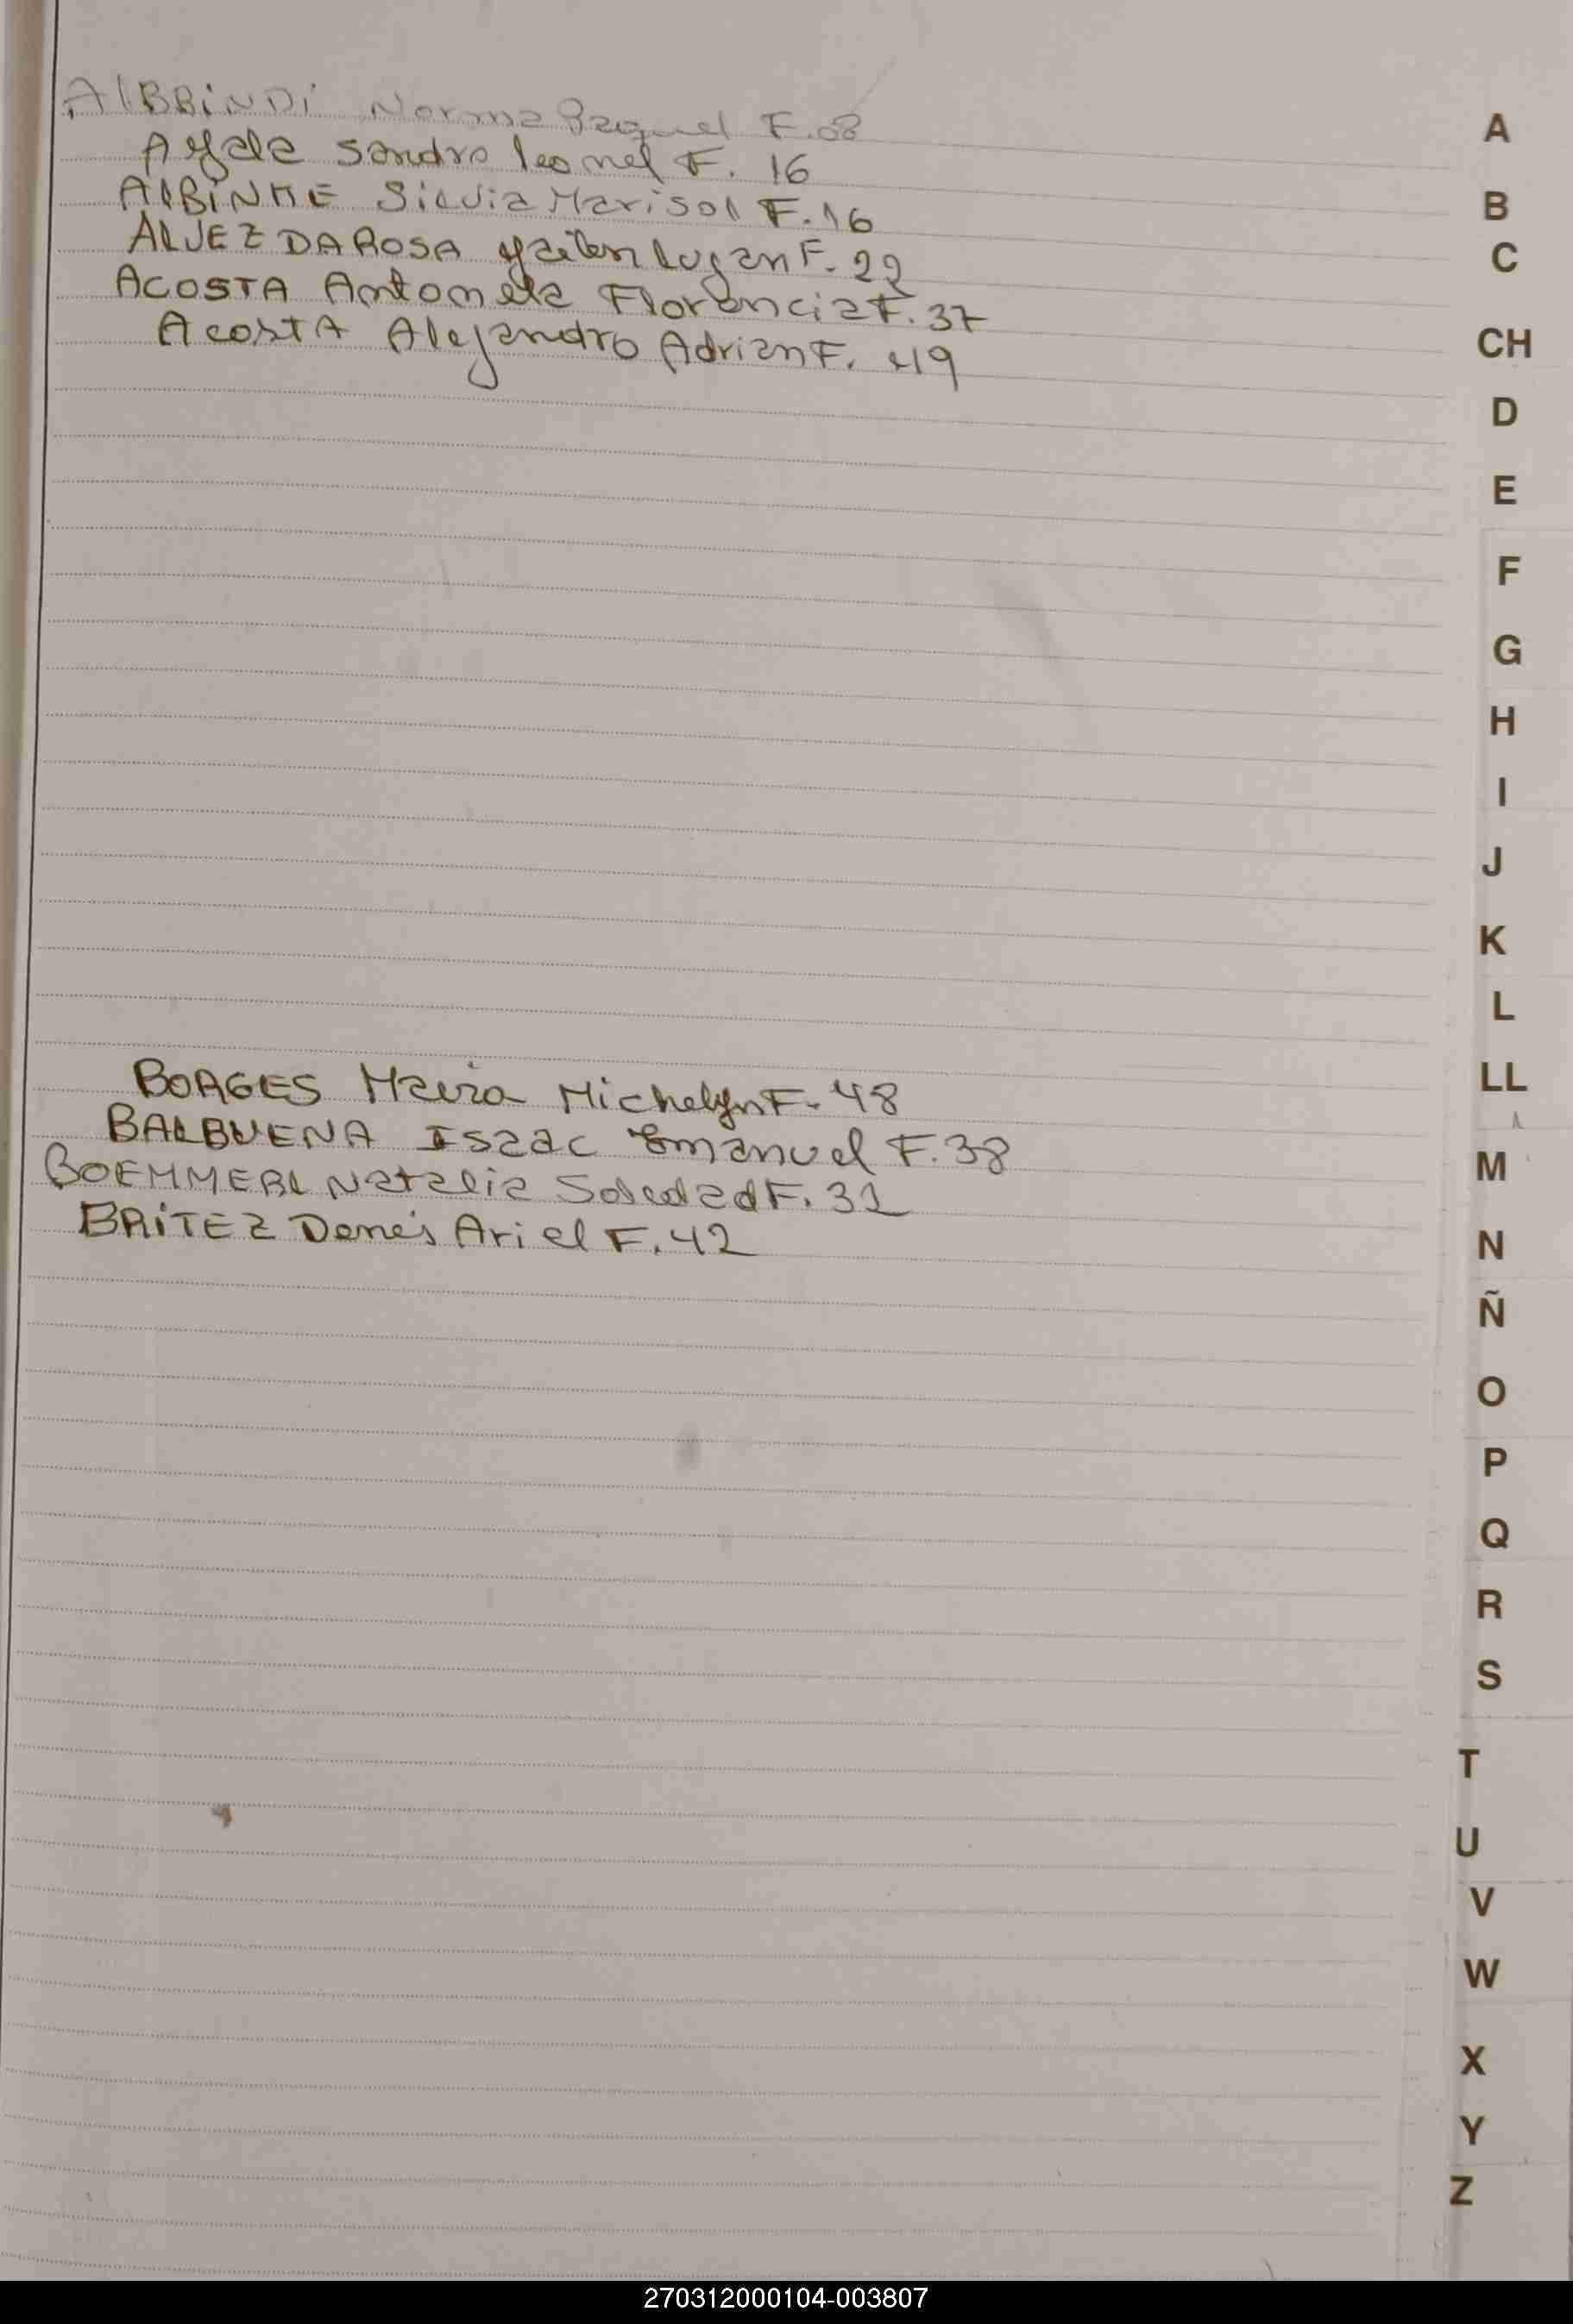 AlBRiNDi Norma Raquel F.08
Ayala Sandro leonel F. 16
AlBiNHE Silvia Marisol F.16
ALVEZ DA ROSA yailen Lujan F. 22
ACOSTA Antonela Florencia F. 37
AcostA Alejandro Adrian F. 49
BORGES Maira Michelyn F. 48
BALBUENA Isaac Emanuel F. 38
BOEMMERL Natalia Soledad F. 31
BRiTEZ Denes Ariel F. 42
A
B
C
CH
D
E
F
G
H
I
J
K
L
LL
M
N
Ñ
O
P
Q
R
S
T
U
V
W
X
Y
Z
270312000104-003807